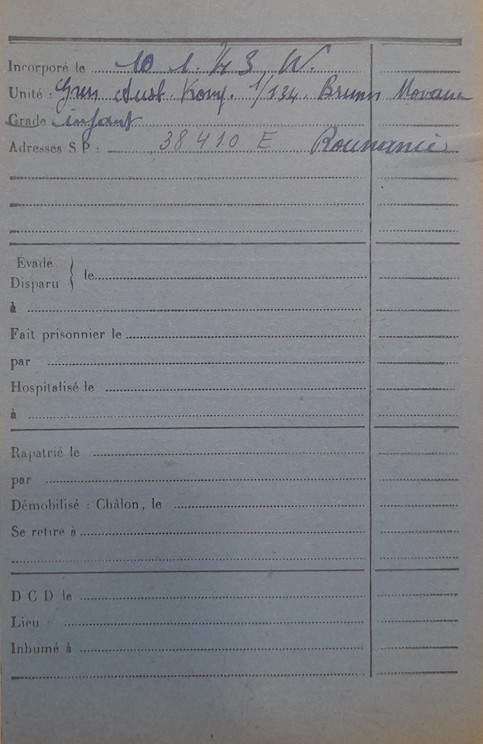 Incorporé le 10 1. 43 W.
Unité : Gren Ausb. Komp. 1/134 Brunn
Grade infant
Adresses S P : 38410 E Roumanie
Evadé
Disparu } le
à
Fait prisonnier le
par
Hospitalisé le
à
Rapatrié le
par
Démobilisé : Châlon, le
Se retire à
D C D le
Lieu :
Inhumé à